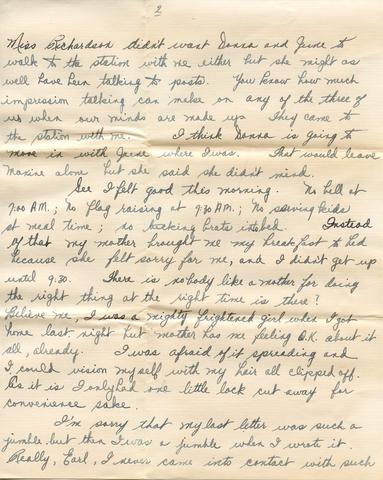 2
Miss Richardson didn't want Donna and June to
walk to the station with me either but she might as
well have been talking to posts. You know how much
impression talking can make on any of the three of
us when our minds are made up. They came to
the station with me. I think Donna is going to
move in with June where I was. That would leave
Maxine alone but she said she didn't mind.
Gee I felt good this morning. No bell at
7:00 A.M.; No flag raising at 7:30 A.M.; No serving kids
at meal time; no tucking brats into bed. Instead
of that my mother brought me my breakfast to bed
because she felt sorry for me, and I didn't get up
until 9:30. There is nobody like a mother for doing
the right thing at the right time is there?
Believe me, I was a mighty frightened girl when I got
home last night but mother has me feeling O.K. about it
all, already. I was afraid of it spreading and
I could vision myself with my hair all clipped off.
As it is I only had one little lock cut away for
convenience sake.
I'm sorry that my last letter was such a
jumble but then I was a jumble when I wrote it.
Really, Earl, I never came into contact with such